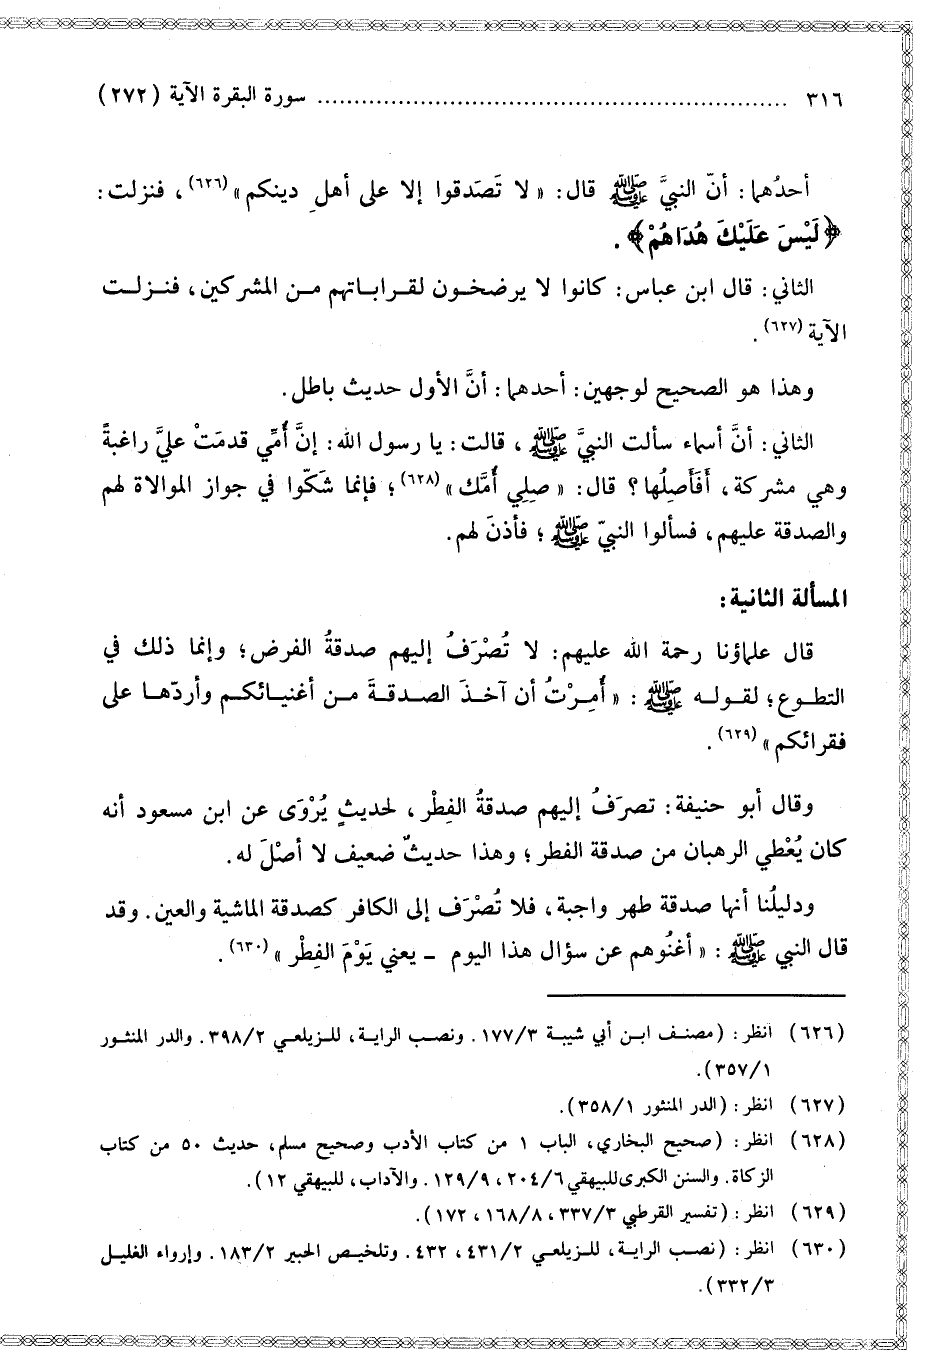 ٣١٦ ................................................................ سورة البقرة الآية (٢٧٢)
أحدُهما: أنّ النبيَّ ﷺ قال: «لا تَصَدقوا إلا على أهلِ دينكم»(٦٢٦)، فنزلت:
﴿لَيْسَ عَلَيْكَ هُدَاهُمْ﴾.
الثاني: قال ابن عباس: كانوا لا يرضخون لقراباتهم من المشركين، فنزلت
الآية(٦٢٧).
وهذا هو الصحيح لوجهين: أحدهما: أنَّ الأول حديث باطل.
الثاني: أنَّ أسماء سألت النبيَّ ﷺ، قالت: يا رسول الله: إنَّ أُمِّي قدمَتْ عليَّ راغبةً
وهي مشركة، أفَأَصِلُها؟ قال: «صِلِي أُمَّك»(٦٢٨)؛ فإنما شَكّوا في جواز الموالاة لهم
والصدقة عليهم، فسألوا النبيّ ﷺ؛ فأذنَ لهم.
المسألة الثانية:
قال علماؤنا رحمة الله عليهم: لا تُصْرَفُ إليهم صدقةُ الفرض؛ وإنما ذلك في
التطوع؛ لقوله ﷺ: «أُمِرْتُ أن آخذَ الصدقةَ من أغنيائكم وأردّها على
فقرائكم»(٦٢٩).
وقال أبو حنيفة: تصرَفُ إليهم صدقةُ الفِطْر، لحديثٍ يُرْوَى عن ابن مسعود أنه
كان يُعْطي الرهبان من صدقة الفطر؛ وهذا حديثٌ ضعيف لا أصْلَ له.
ودليلُنا أنها صدقة طهر واجبة، فلا تُصْرَف إلى الكافر كصدقة الماشية والعين. وقد
قال النبي ﷺ: «أغنُوهم عن سؤال هذا اليوم - يعني يَوْمَ الفِطْر»(٦٣٠).
(٦٢٦) انظر: (مصنف ابن أبي شيبة ١٧٧/٣. ونصب الراية، للزيلعي ٣٩٨/٢. والدر المنثور
٣٥٧/١).
(٦٢٧) انظر: (الدر المنثور ٣٥٨/١).
(٦٢٨) انظر: (صحيح البخاري، الباب ١ من كتاب الأدب وصحيح مسلم، حديث ٥٠ من كتاب
الزكاة. والسنن الكبرى للبيهقي ٢٠٤/٦، ١٢٩/٩. والآداب، للبيهقي ١٢).
(٦٢٩) انظر: (تفسير القرطبي ٣٣٧/٣، ١٦٨/٨، ١٧٢).
(٦٣٠) انظر: (نصب الراية، للزيلعي ٤٣١/٢، ٤٣٢. وتلخيص الحبير ١٨٣/٢. وإرواء الغليل
٣٣٢/٣).